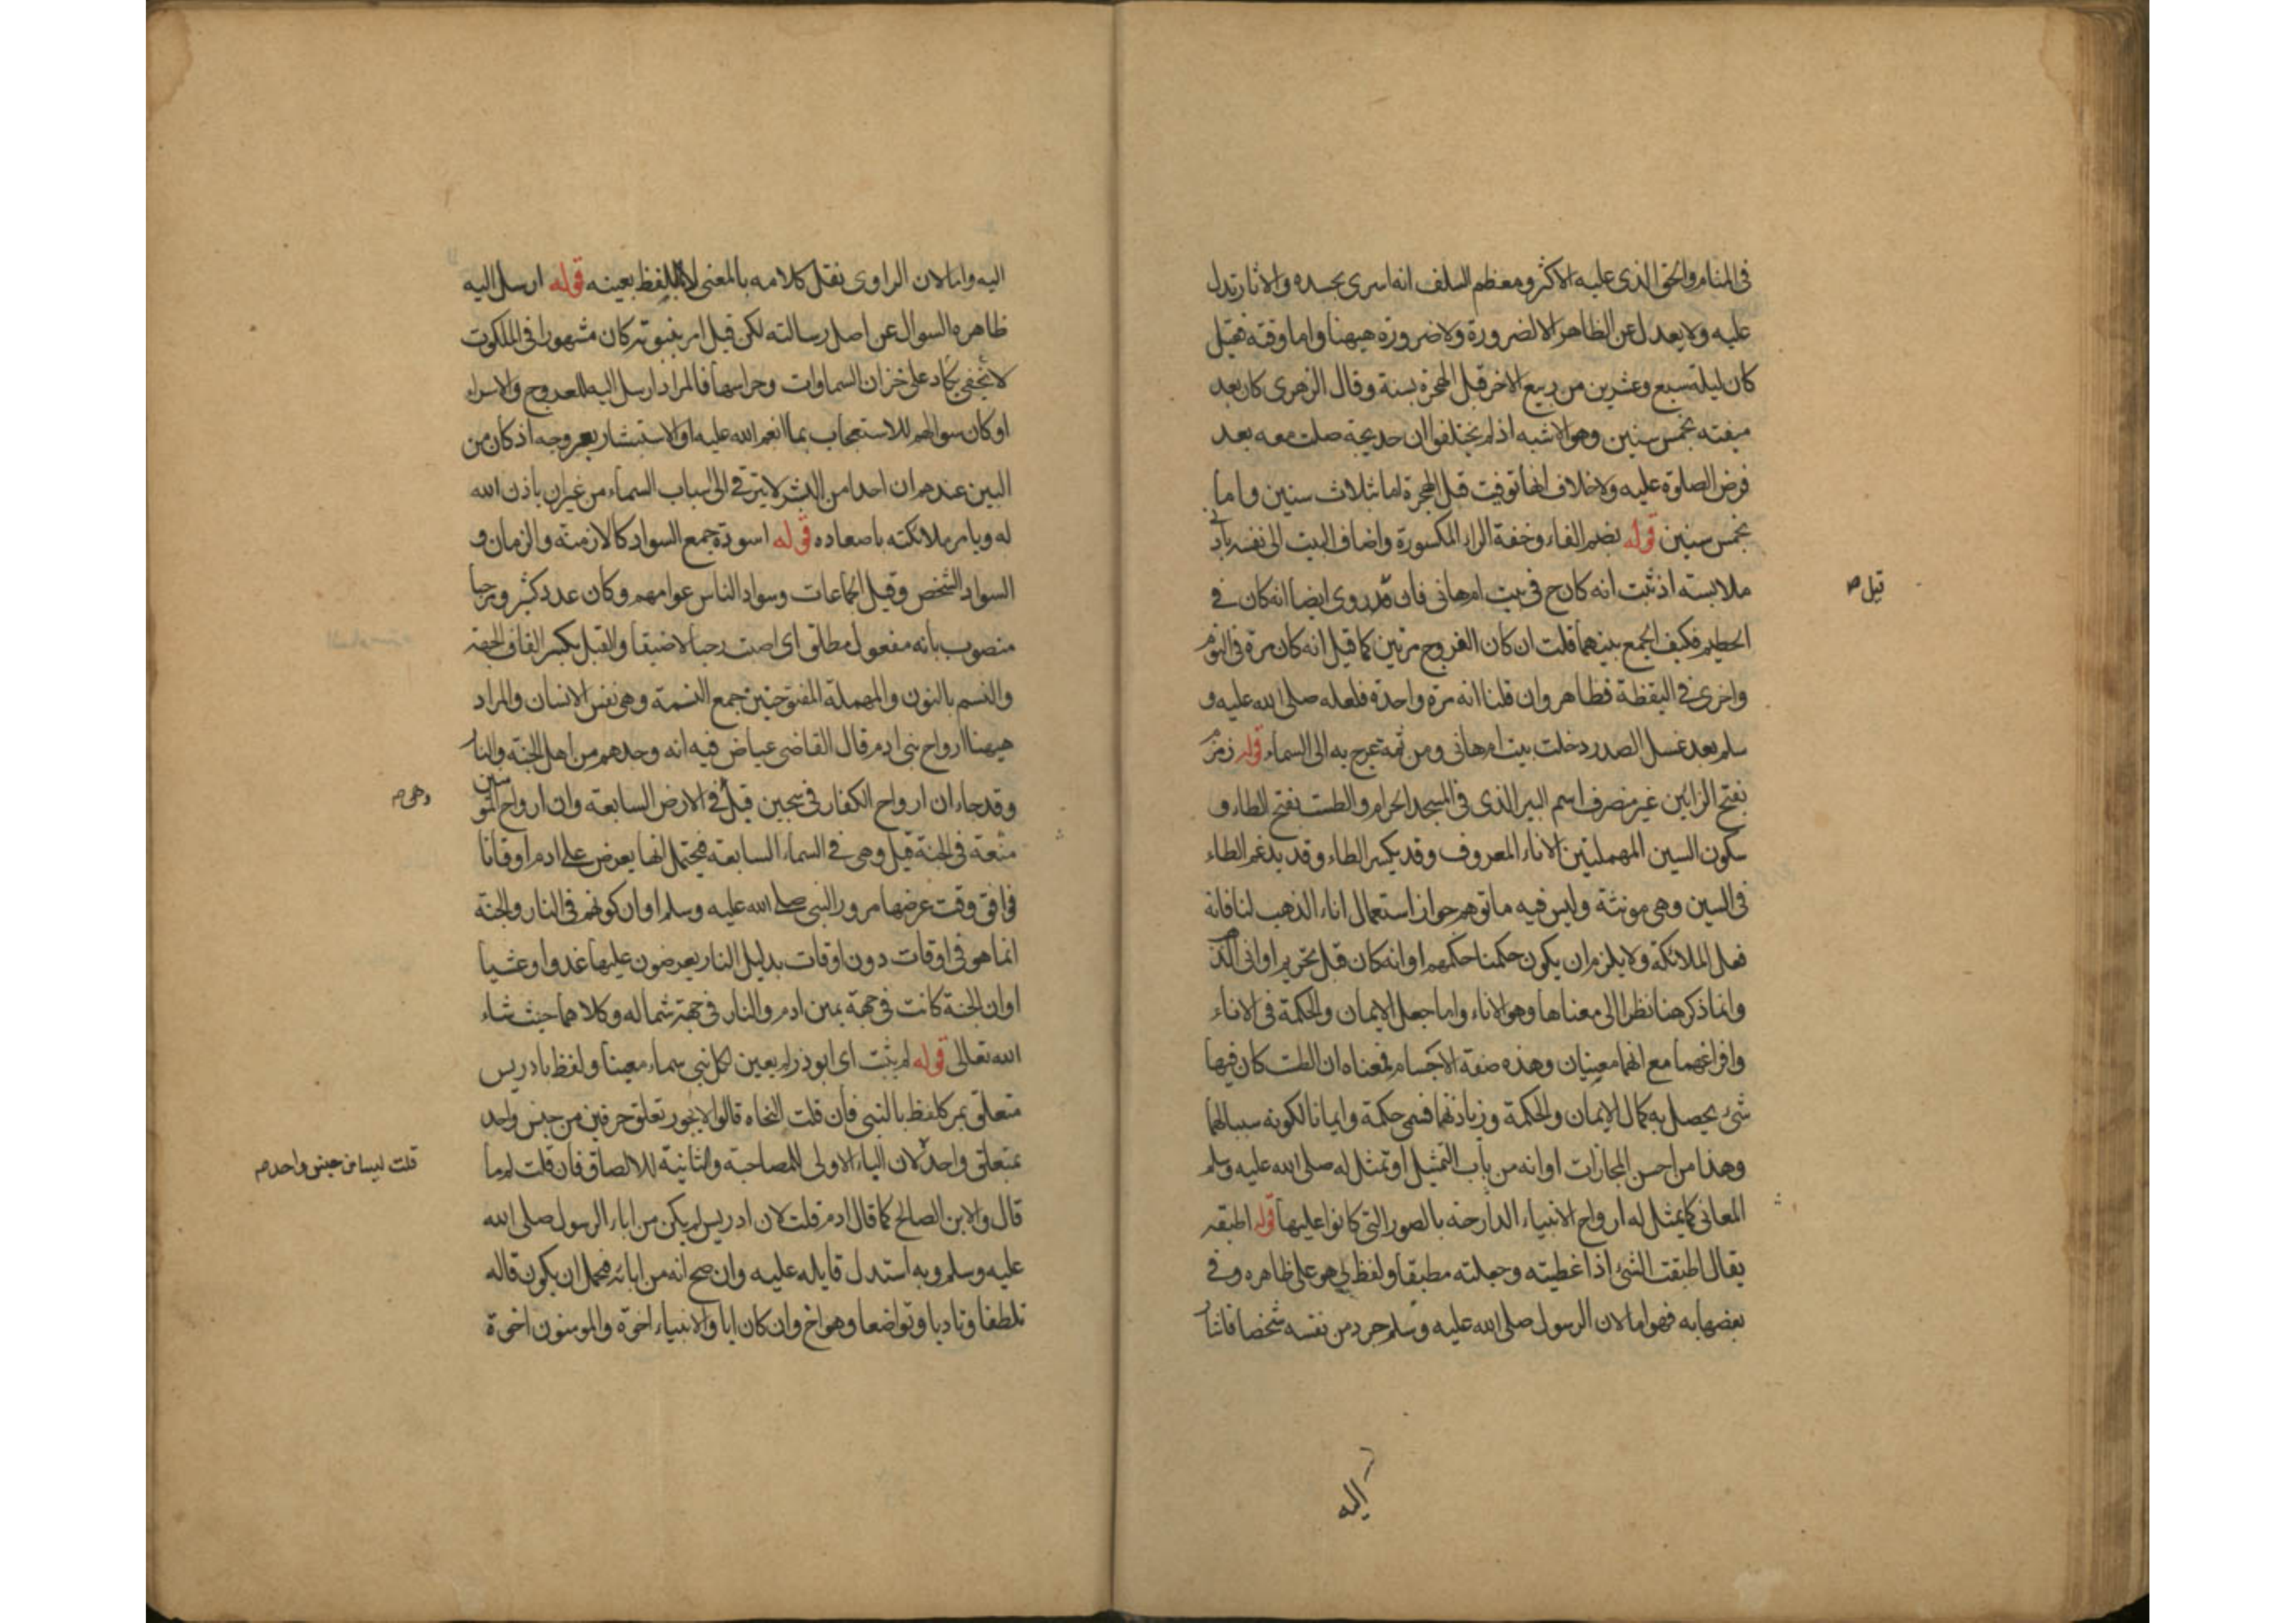 في المنام والحق الذى عليه الاكثر ومعظم السلف انه اسرى بجسده والاثار تدل
عليه ولا يعدل عن الظاهر الا لضرورة ولا ضرورة هيهنا واما وقته فقيل
كان ليلة سبع وعشرين من ربيع الاخر قبل الهجرة بسنة وقال الزهرى كان بعد
مبعثه بخمس سنين وهو الاشبه اذ لم يختلفوا ان خديجة صلت معه بعد
فرض الصلوة عليه ولا خلاف انها توفيت قبل الهجرة اما بثلاث سنين واما
بخمس سنين قوله بضم الفاء وخفة الراء المكسورة واضاف البيت الى نفسه بادنى
ملابسته اذ ثبت انه كان ح فى بيت ام هانى فان قد روى ايضا انه كان فى
قيل صح
الحطيم فكيف الجمع بينهما قلت ان كان العروج مرتين كما قيل انه كان مرة فى النوم
واخرى فى اليقظة فظاهر وان قلنا انه مرة واحدة فلعله صلى الله عليه و
سلم بعد غسل الصدر دخلت بيت ام هانى ومن ثمة عرج به الى السماء قوله زمزم
بفتح الزائين غير منصرف اسم البير الذى فى المسجد الحرام والطست بفتح الطاء و
سكون السين المهملتين الاناء المعروف وقد يكسر الطاء وقد يدغم الطاء
فى السين وهى مونثة وليس فيه ما توهم جواز استعمال اناء الذهب لنا فانه
فعل الملائكة ولا يلزم ان يكون حكمنا حكمهم او انه كان قبل تحريم اوانى الذهب
وانما ذكر هنا نظرا الى معناها وهو الاناء واما جعل الايمان والحكمة فى الاناء
وافراغهما مع انهما معينيان وهذه صفة الاجسام فمعناه ان الطست كان فيها
شئ يحصل به كمال الايمان والحكمة وزيادتهما فسمى حكمة وايمانا لكونه سببا لهما
وهذا من احسن المجازات او انه من باب التمثيل او تمثل له صلى الله عليه وسلم
المعانى كما يمثل له ارواح الانبياء الدارجنه بالصور التى كانوا عليها قوله اطبقه
يقال اطبقت الشئ اذا غطيته وجعلته مطبقا ولفظ بى هو على ظاهره وفى
بعضها به فهو اما لان الرسول صلى الله عليه وسلم جرد من نفسه شخصا فاشار
اليه
اليه واما لان الراوى نقل كلامه بالمعنى لا باللفظ بعينه قوله ارسل اليه
ظاهره السوال عن اصل رسالته لكن قيل امر بنبوته كان مشهورا فى الملكوت
لا يخفى يكاد على خزان السماوات وحراسها فالمراد ارسل اليه للعروج والاسراء
او كان سوالهم للاستعجاب بما انعم الله عليه او الاستبشار بعروجه اذ كان من
البين عندهم ان احدا من البشر لا يترقى الى اسباب السماء من غير ان ياذن الله
له ويامر ملائكته باصعاده قوله اسودة جمع السواد كالازمنة والزمان و
السواد الشخص وقيل الجماعات وسواد الناس عوامهم وكان عدد كثير ومرحبا
منصوب بانه مفعول مطلق اى اصبت رحبا لا ضيقا والقبل بكسر القاف الجهة
والنسم بالنون والمهملة المفتوحتين جمع النسمة وهى نفس الانسان والمراد
هيهنا ارواح بنى ادم قال القاضى عياض فيه انه وجدهم من اهل الجنة والنار
وقد جاء ان ارواح الكفار فى سجين قيل فى الارض السابعة وان ارواح المومنين
وهى صح
منعمة فى الجنة قيل وهى فى السماء السابعة فيحتمل انها يعرض على ادم اوقاتا
فوافق وقت عرضها مرور النبى صلى الله عليه وسلم او ان كونهم فى النار والجنة
انما هو فى اوقات دون اوقات بدليل النار يعرضون عليها غدوا وعشيا
او ان الجنة كانت فى جهة يمين ادم والنار فى جهة شماله وكلاهما حيث شاء
الله تعالى قوله لم يثبت اى ابو ذر لم يعين لكل نبى سماء معينا ولفظ بادريس
متعلق بمر كلفظ بالنبى فان قلت النحاه قالوا لا يجوز تعلق حرفين من جنس واحد
بمتعلق واحد لان الباء الاولى للمصاحبة والثانية للالصاق فان قلت لم ما
قلت ليسا من جنس واحد صح
قال والابن الصالح كما قال ادم قلت لان ادريس لم يكن من اباء الرسول صلى الله
عليه وسلم وبه استدل قايله عليه وان صح انه من ابائه فيحمل ان يكون قاله
تلطفا وتادبا وتواضعا وهو اخ وان كان ابا والانبياء اخوة والمومنون اخوة